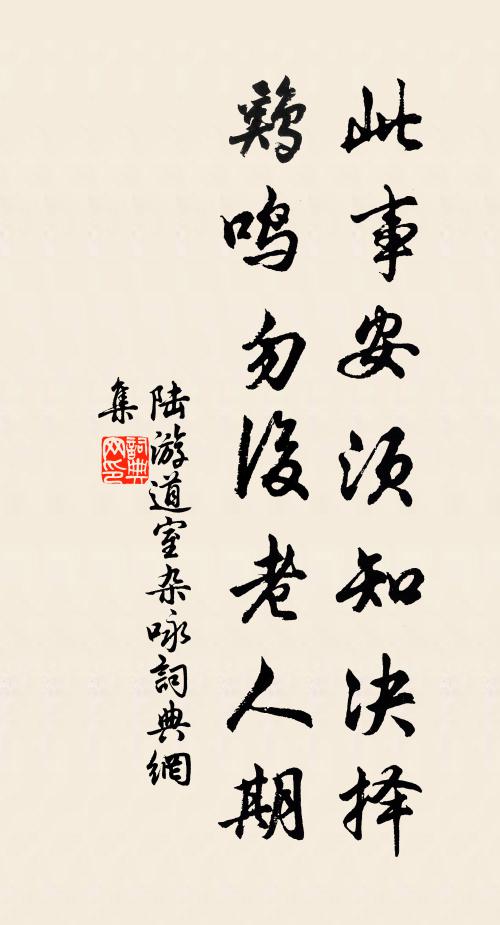 此事安须知决择
鸡鸣勿後老人期
陆游道室杂咏詞典網
集
詞典網印